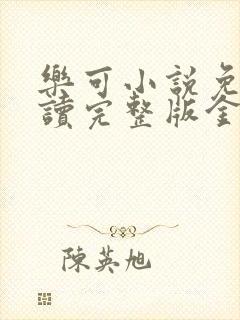 樂可小說免
讀完整版全
陳英旭